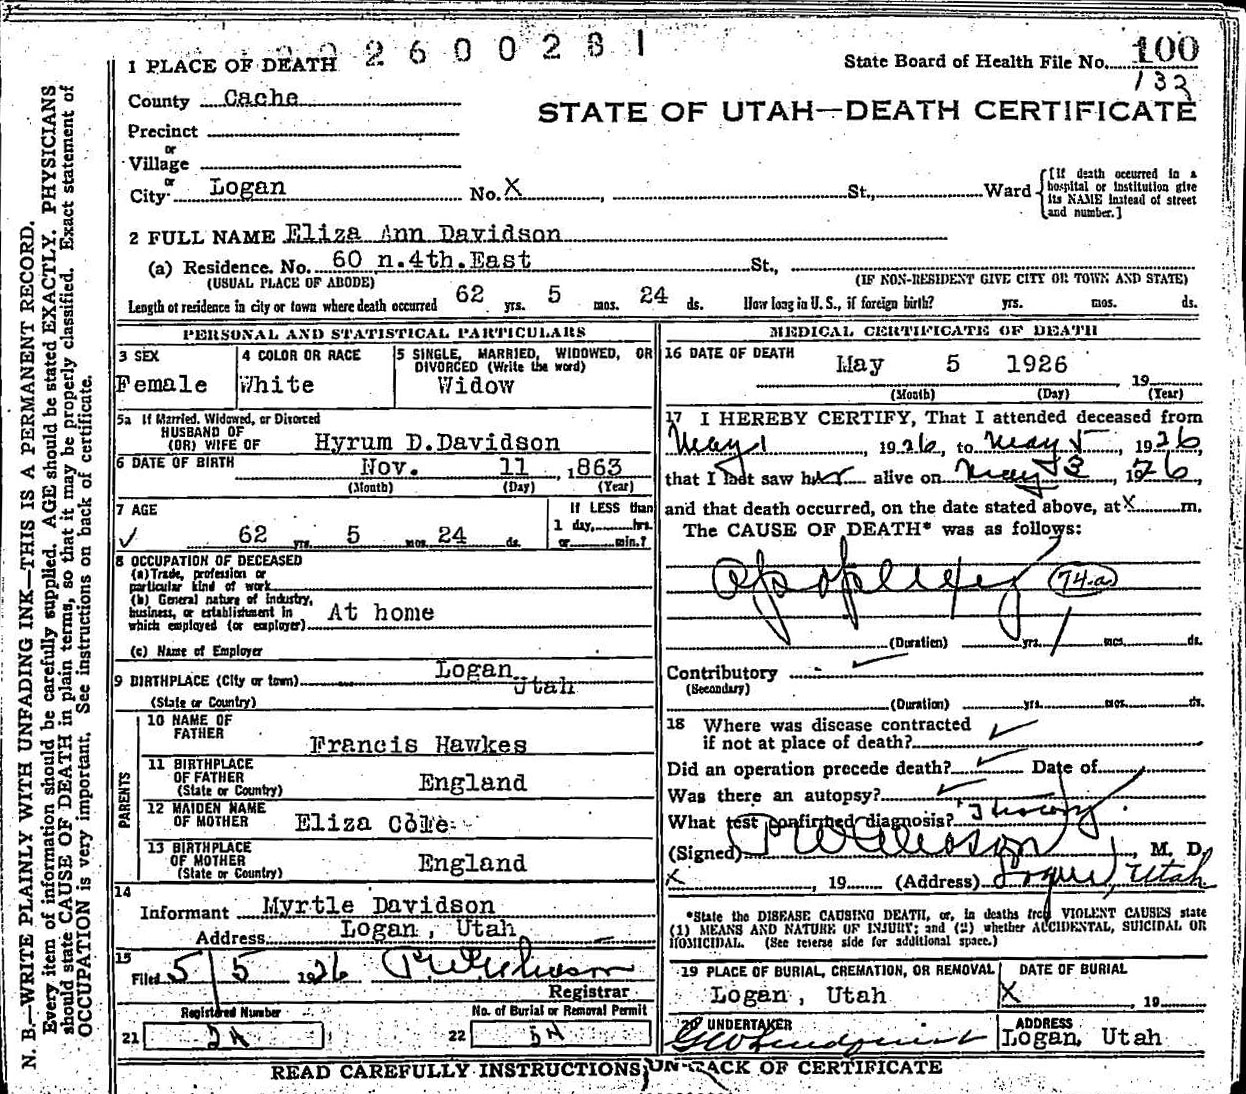 2600281
1 PLACE OF DEATH
State Board of Health File No. 100
132
County Cache
STATE OF UTAH—DEATH CERTIFICATE
Precinct
or
Village
or
City Logan No. X St., Ward
[If death occurred in a hospital or institution give its NAME instead of street and number.]
2 FULL NAME Eliza Ann Davidson
(a) Residence. No. 60 n.4th.East St.,
(USUAL PLACE OF ABODE) (IF NON-RESIDENT GIVE CITY OR TOWN AND STATE)
Length of residence in city or town where death occurred 62 yrs. 5 mos. 24 ds. How long in U. S., if foreign birth? yrs. mos. ds.
PERSONAL AND STATISTICAL PARTICULARS
3 SEX
Female
4 COLOR OR RACE
White
5 SINGLE, MARRIED, WIDOWED, OR
DIVORCED (Write the word)
Widow
5a If Married, Widowed, or Divorced
HUSBAND OF
(OR) WIFE OF Hyrum D.Davidson
6 DATE OF BIRTH Nov. 11 ,1863
(Month) (Day) (Year)
7 AGE
62 yrs. 5 mos. 24 ds.
If LESS than
1 day, hrs.
or min.?
8 OCCUPATION OF DECEASED
(a) Trade, profession or
particular kind of work
(b) General nature of industry,
business, or establishment in
which employed (or employer) At home
(c) Name of Employer
9 BIRTHPLACE (City or town) Logan
Utah
(State or Country)
PARENTS
10 NAME OF
FATHER Francis Hawkes
11 BIRTHPLACE
OF FATHER England
(State or Country)
12 MAIDEN NAME
OF MOTHER Eliza Cole
13 BIRTHPLACE
OF MOTHER England
(State or Country)
14
Informant Myrtle Davidson
Address Logan , Utah
15
Filed 5/5 1926
Registrar
Registered Number
21 54
No. of Burial or Removal Permit
22 54
MEDICAL CERTIFICATE OF DEATH
16 DATE OF DEATH May 5 1926
, 19
(Month) (Day) (Year)
17 I HEREBY CERTIFY, That I attended deceased from
May 1 1926, to May 5, 1926
that I last saw her alive on May 3, 1926
and that death occurred, on the date stated above, at X m.
The CAUSE OF DEATH* was as follows:
Apoplexy 74.a
(Duration) yrs. mos. ds.
Contributory
(Secondary)
(Duration) yrs. mos. ds.
18 Where was disease contracted
if not at place of death?
Did an operation precede death? Date of
Was there an autopsy?
What test confirmed diagnosis? History
(Signed) , M. D.
X , 19 (Address) Logan, Utah
*State the DISEASE CAUSING DEATH, or, in deaths from VIOLENT CAUSES state
(1) MEANS AND NATURE OF INJURY; and (2) whether ACCIDENTAL, SUICIDAL OR
HOMICIDAL. (See reverse side for additional space.)
19 PLACE OF BURIAL, CREMATION, OR REMOVAL
Logan , Utah
DATE OF BURIAL
X , 19
20 UNDERTAKER
ADDRESS
Logan, Utah
READ CAREFULLY INSTRUCTIONS ON BACK OF CERTIFICATE
N. B.—WRITE PLAINLY WITH UNFADING INK—THIS IS A PERMANENT RECORD.
Every item of information should be carefully supplied. AGE should be stated EXACTLY. PHYSICIANS
should state CAUSE OF DEATH in plain terms, so that it may be properly classified. Exact statement of
OCCUPATION is very important. See instructions on back of certificate.